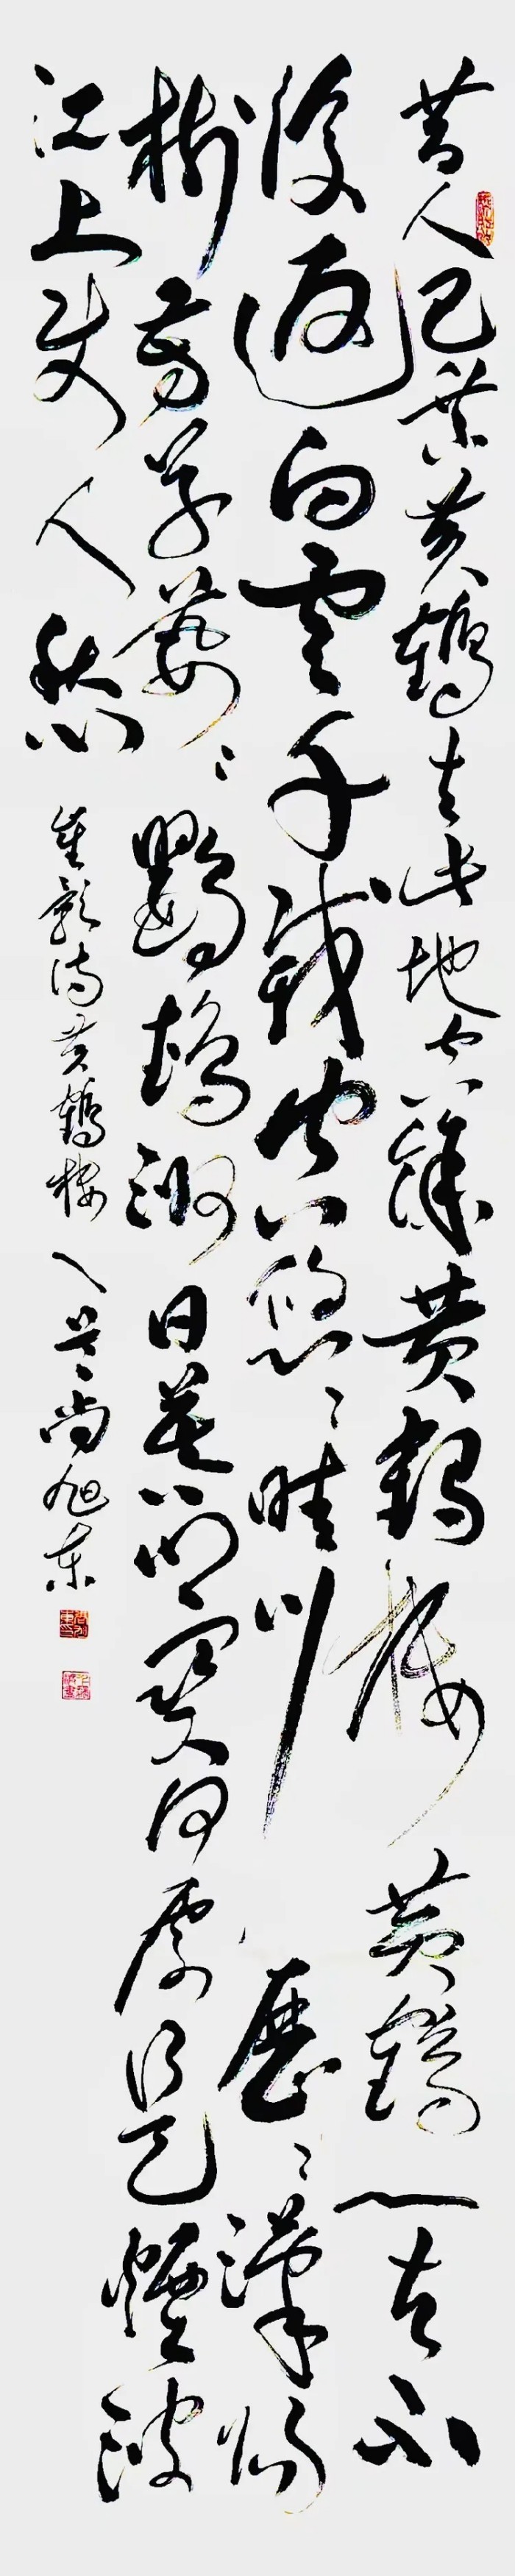 昔人已乘黄鶴去此地空餘黄鶴樓黄鶴一去不
復返白雲千載空悠々晴川歷々漢陽
樹芳草萋々鸚鵡洲日暮鄉關何處是煙波
江上使人愁
崔顥詩黄鶴樓 尚旭東